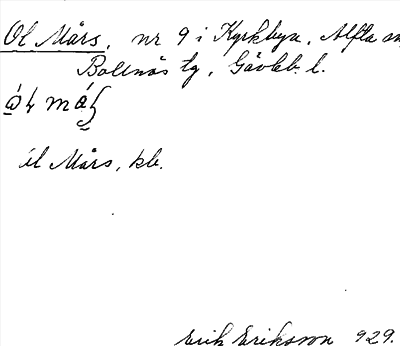 Ol Mårs, nr 9 i Kyrkbyn, Alfta sn,
Bollnäs tg, Gävleb. l.
Ol Mårs, kb.
Erik Eriksson 929.